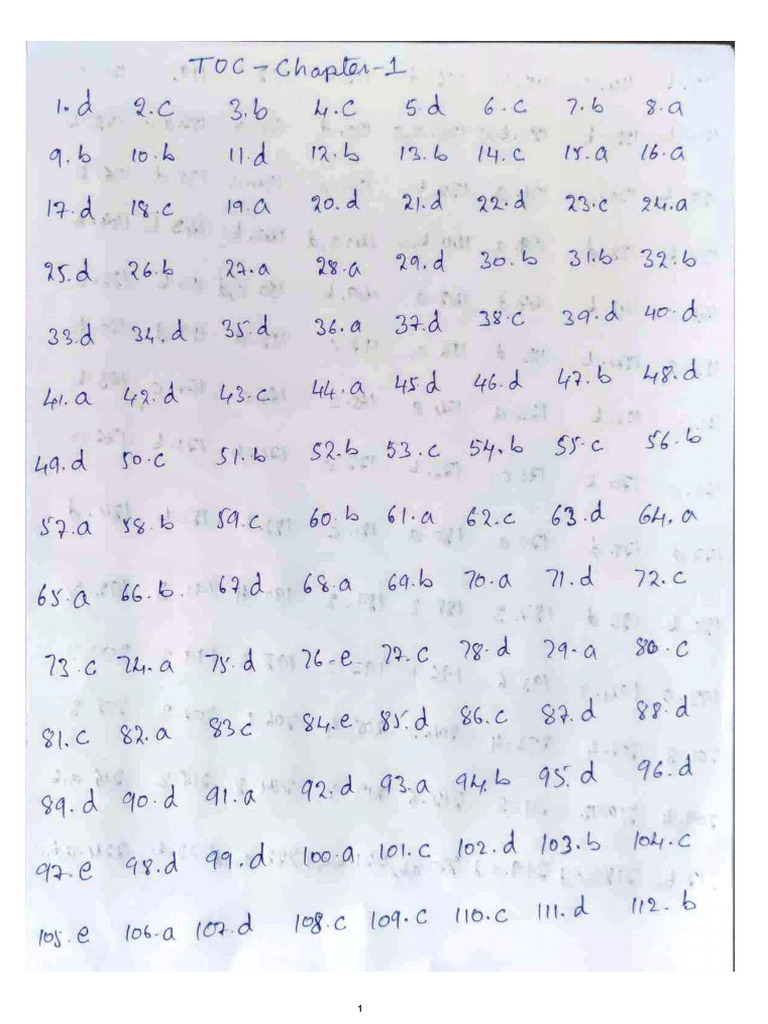 TOC - Chapter-1
1.d 2.c 3.b 4.c 5.d 6.c 7.b 8.a
9.b 10.b 11.d 12.b 13.b 14.c 15.a 16.a
17.d 18.c 19.a 20.d 21.d 22.d 23.c 24.a
25.d 26.b 27.a 28.a 29.d 30.b 31.b 32.b
33.d 34.d 35.d 36.a 37.d 38.c 39.d 40.d
41.a 42.d 43.c 44.a 45.d 46.d 47.b 48.d
49.d 50.c 51.b 52.b 53.c 54.b 55.c 56.b
57.a 58.b 59.c 60.b 61.a 62.c 63.d 64.a
65.a 66.b. 67.d 68.a 69.b 70.a 71.d 72.c
73.c 74.a 75.d 76-e 77.c 78.d 79-a 80.c
81.c 82.a 83c 84.e 85.d 86.c 87.d 88.d
89.d 90.d 91.a 92.d 93.a 94.b 95.d 96.d
97.e 98.d 99.d 100.a 101.c 102.d 103.b 104.c
105.e 106.a 107.d 108.c 109.c 110.c 111.d 112.b
1